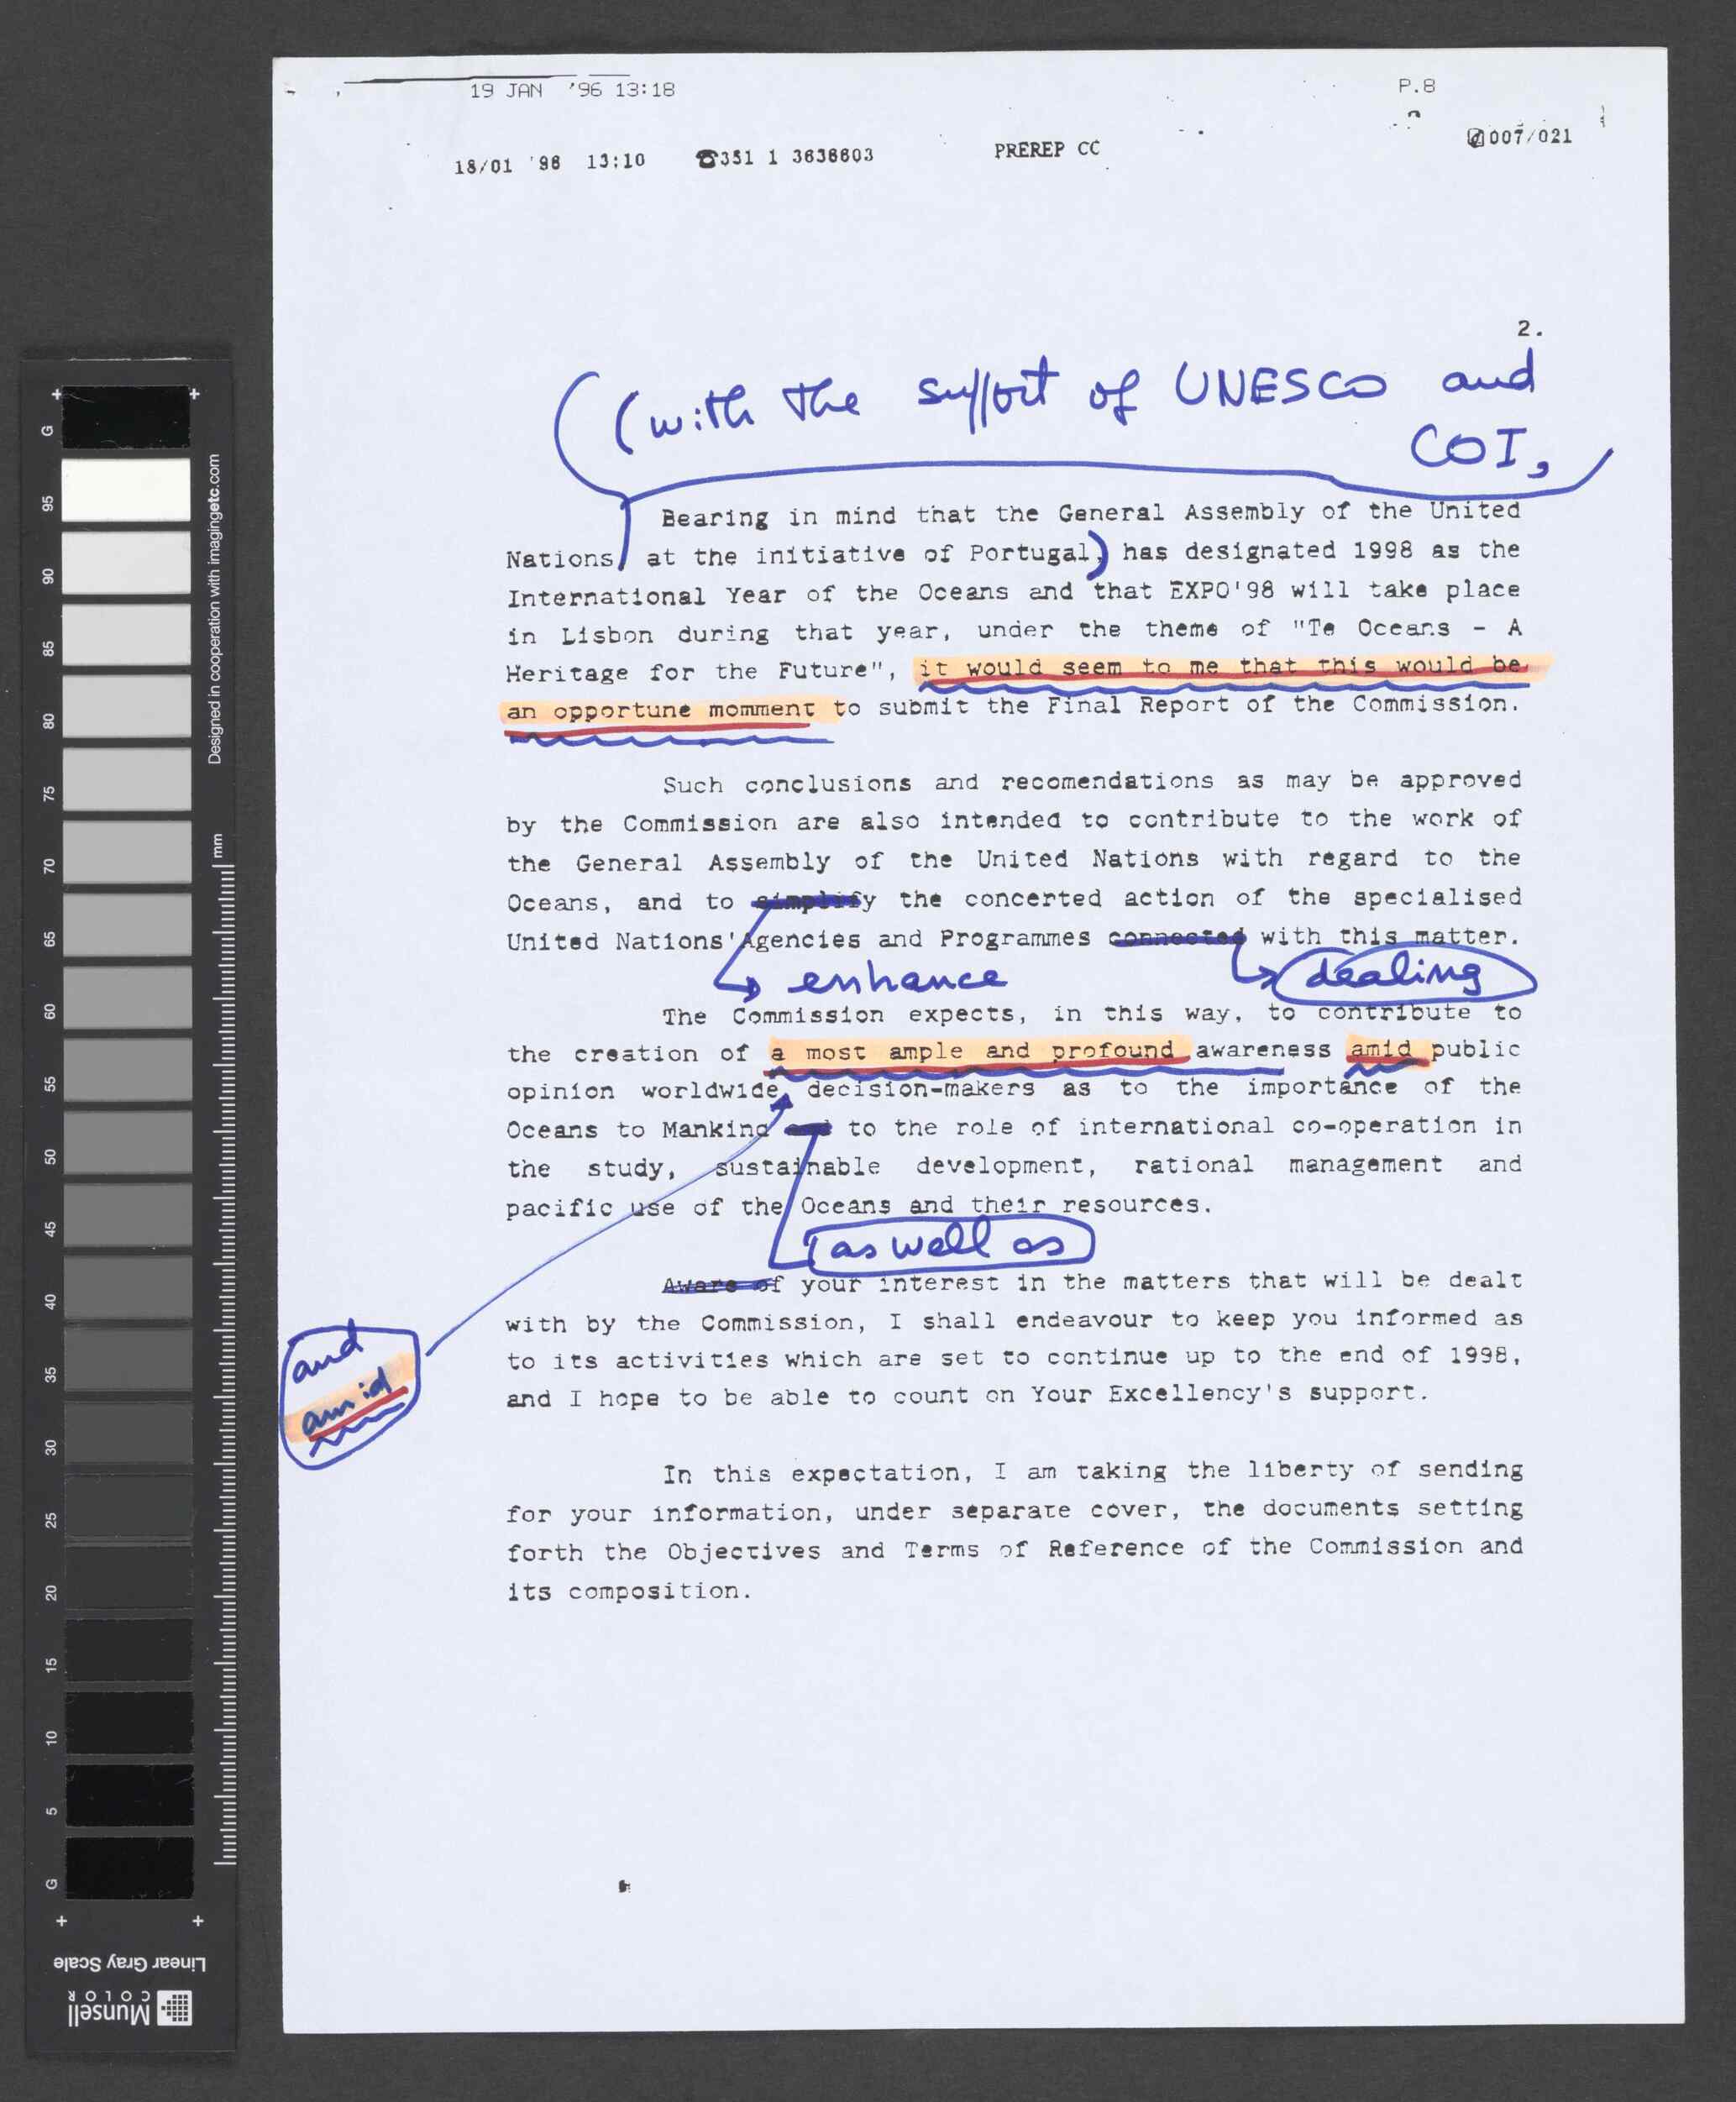 19 JAN '96 13:18 P.8
18/01 '96 13:10 ☎351 1 3636603 PREREP CC 007/021
2.
(with the support of UNESCO and
COI,
Bearing in mind that the General Assembly of the United
Nations, at the initiative of Portugal,) has designated 1998 as the
International Year of the Oceans and that EXPO'98 will take place
in Lisbon during that year, under the theme of "Te Oceans - A
Heritage for the Future", it would seem to me that this would be
an opportune momment to submit the Final Report of the Commission.
Such conclusions and recomendations as may be approved
by the Commission are also intended to contribute to the work of
the General Assembly of the United Nations with regard to the
Oceans, and to simplify the concerted action of the specialised
United Nations' Agencies and Programmes connected with this matter.
enhance dealing
The Commission expects, in this way, to contribute to
the creation of a most ample and profound awareness amid public
opinion worldwide, decision-makers as to the importance of the
Oceans to Mankind and to the role of international co-operation in
the study, sustainable development, rational management and
pacific use of the Oceans and their resources.
as well as
Aware of your interest in the matters that will be dealt
with by the Commission, I shall endeavour to keep you informed as
to its activities which are set to continue up to the end of 1998,
and I hope to be able to count on Your Excellency's support.
and
amid
In this expectation, I am taking the liberty of sending
for your information, under separate cover, the documents setting
forth the Objectives and Terms of Reference of the Commission and
its composition.
G
95
90
85
80
75
70
65
60
55
50
45
40
35
30
25
20
15
10
5
G
mm
Designed in cooperation with imagingetc.com
Linear Gray Scale
Munsell
COLOR